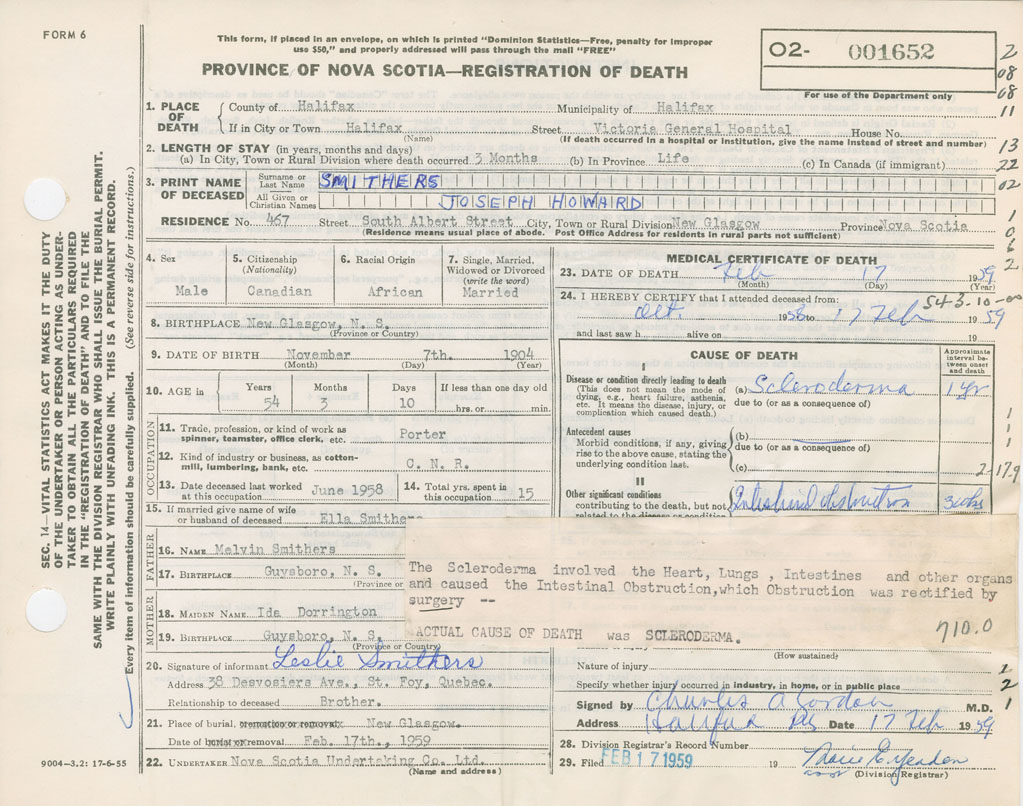 FORM 6
This form, if placed in an envelope, on which is printed "Dominion Statistics—Free, penalty for improper
use $50," and properly addressed will pass through the mail "FREE"
PROVINCE OF NOVA SCOTIA—REGISTRATION OF DEATH
O2- 001652
For use of the Department only
2
08
08
11
13
22
02
1
0
6
2
SEC. 14—VITAL STATISTICS ACT MAKES IT THE DUTY
OF THE UNDERTAKER OR PERSON ACTING AS UNDER-
TAKER TO OBTAIN ALL THE PARTICULARS REQUIRED
IN THE "REGISTRATION OF DEATH" AND TO FILE THE
SAME WITH THE DIVISION REGISTRAR WHO SHALL ISSUE THE BURIAL PERMIT.
WRITE PLAINLY WITH UNFADING INK. THIS IS A PERMANENT RECORD.
Every item of information should be carefully supplied. (See reverse side for instructions.)
1. PLACE OF DEATH County of Halifax Municipality of Halifax
If in City or Town Halifax Street Victoria General Hospital House No.
(Name) (If death occurred in a hospital or institution, give the name instead of street and number)
2. LENGTH OF STAY (in years, months and days)
(a) In City, Town or Rural Division where death occurred 3 Months (b) In Province Life (c) In Canada (if immigrant)
3. PRINT NAME OF DECEASED Surname or Last Name SMITHERS
All Given or Christian Names JOSEPH HOWARD
RESIDENCE No. 467 Street South Albert Street City, Town or Rural Division New Glasgow Province Nova Scotia
(Residence means usual place of abode. Post Office Address for residents in rural parts not sufficient)
4. Sex 5. Citizenship (Nationality) 6. Racial Origin 7. Single, Married, Widowed or Divorced (write the word)
Male Canadian African Married
8. BIRTHPLACE New Glasgow, N. S.
(Province or Country)
9. DATE OF BIRTH November 7th. 1904
(Month) (Day) (Year)
10. AGE in Years Months Days If less than one day old
54 3 10 hrs. or min.
OCCUPATION
11. Trade, profession, or kind of work as spinner, teamster, office clerk, etc. Porter
12. Kind of industry or business, as cotton-mill, lumbering, bank, etc. C. N. R.
13. Date deceased last worked at this occupation June 1958 14. Total yrs. spent in this occupation 15
15. If married give name of wife or husband of deceased Ella Smithers
FATHER
16. NAME Melvin Smithers
17. BIRTHPLACE Guysboro, N. S.
(Province or
MOTHER
18. MAIDEN NAME Ida Dorrington
19. BIRTHPLACE Guysboro, N. S.
(Province or Country)
20. Signature of informant Leslie Smithers
Address 38 Desvosiers Ave., St. Foy, Quebec.
Relationship to deceased Brother.
21. Place of burial, cremation or removal New Glasgow.
Date of burial or removal Feb. 17th., 1959
22. UNDERTAKER Nova Scotia Undertaking Co. Ltd.
(Name and address)
9004—3.2: 17-6-55
MEDICAL CERTIFICATE OF DEATH
23. DATE OF DEATH Feb 17 1959
(Month) (Day) (Year)
543.10-00
24. I HEREBY CERTIFY that I attended deceased from:
Oct. 1958 to 17 Feb 1959
and last saw h alive on 19
CAUSE OF DEATH
Approximate interval between onset and death
I
Disease or condition directly leading to death
(This does not mean the mode of dying, e.g., heart failure, asthenia, etc. It means the disease, injury, or complication which caused death.)
(a) Scleroderma 1 yr
due to (or as a consequence of)
Antecedent causes
Morbid conditions, if any, giving rise to the above cause, stating the underlying condition last.
(b)
due to (or as a consequence of)
(c)
1
1
1
2-17.9
II
Other significant conditions
contributing to the death, but not
related to the disease or condition
Intestinal obstruction
The Scleroderma involved the Heart, Lungs , Intestines and other organs
and caused the Intestinal Obstruction,which Obstruction was rectified by
surgery --
ACTUAL CAUSE OF DEATH was SCLERODERMA.
710.0
(How sustained)
Nature of injury
Specify whether injury occurred in industry, in home, or in public place
2
2
1
Signed by Charles A Gordon M.D.
Address Halifax NS Date 17 Feb 1959
28. Division Registrar's Record Number
29. Filed FEB 17 1959 19
(Division Registrar)